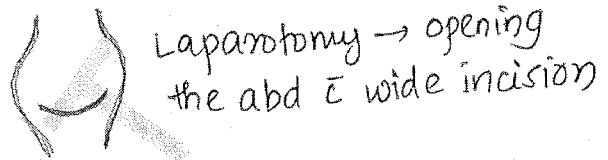 Laparotomy → opening
the abd c̄ wide incision